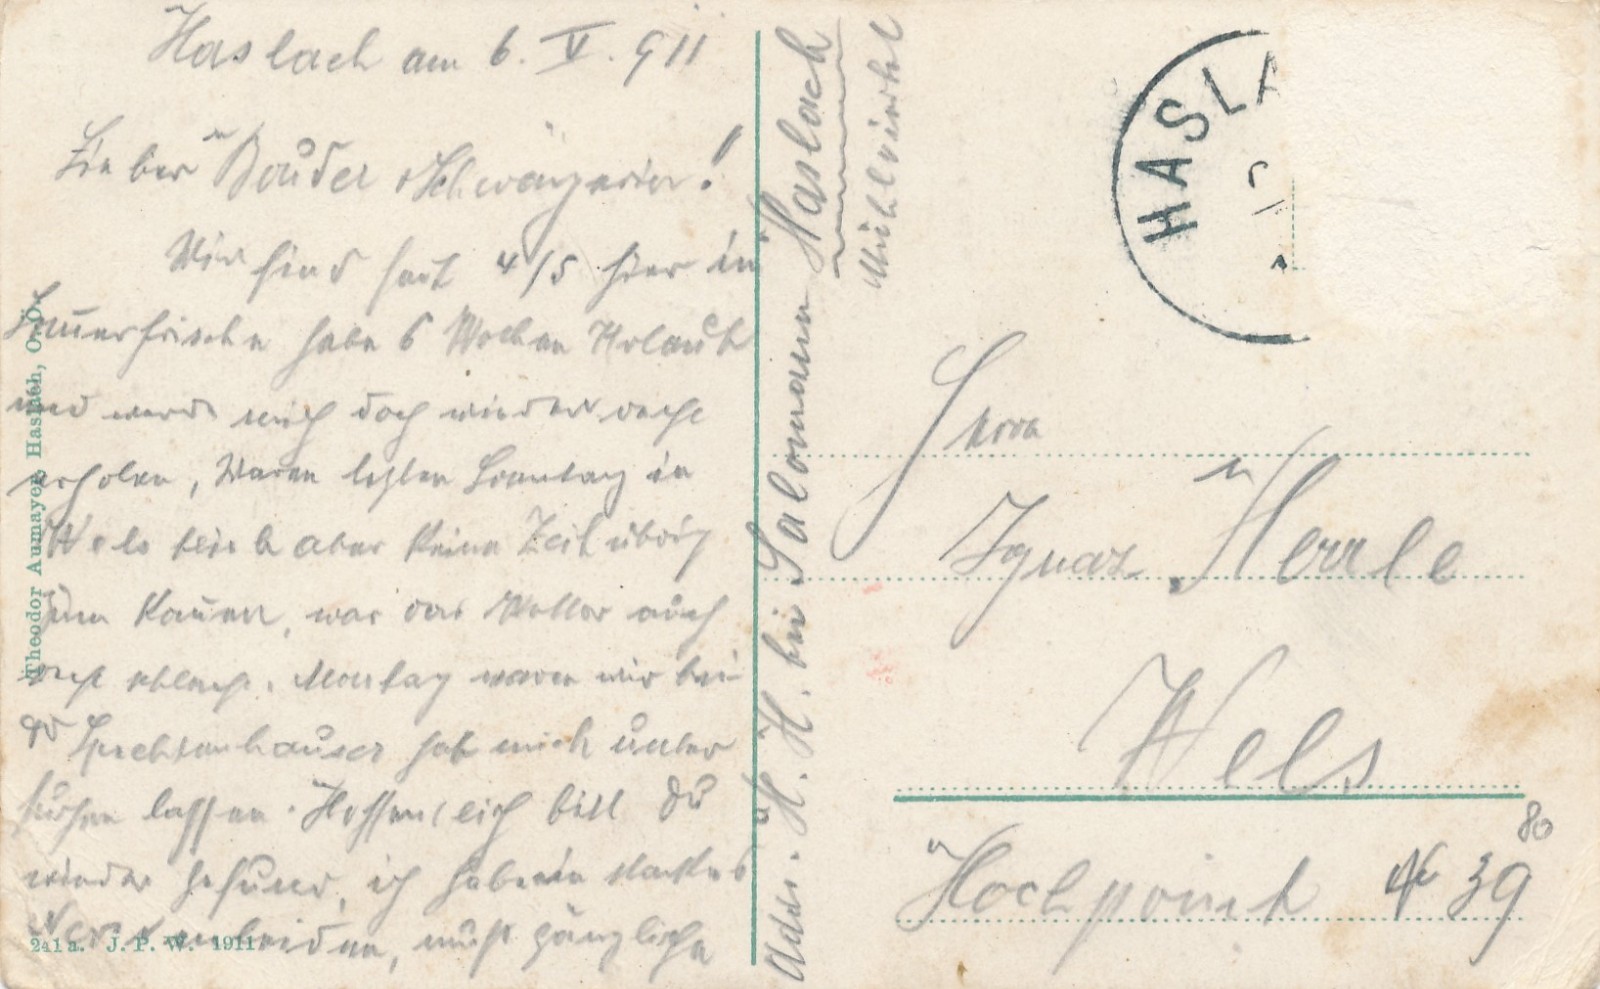 Haslach am 6. V. 911
Lieber Bruder u Schwägerin!
Wir sind seit 4/5 hier in
Sommerfrische habe 6 Wochen Urlaub
und werde mich doch wieder recht
erholen, Waren letzten Sonntag in
Wels blieb aber keine Zeit übrig
zum kommen, war das Wetter auch
recht schlecht. Montag waren wir bei
Dr hab mich unter
suchen lassen. Hoffentlich bist Du
wieder gesund, ich habe ein starkes
Nervenleiden, muß gänzliche
Addr. H. H. bei Salomann Haslach
Mühlviertel
HASLA
Herrn
Ignaz Herrle
Wels
Hochpoint № 39
80
Theodor Aumayer, Haslach, O.Ö.
241a. J. P. W. 1911